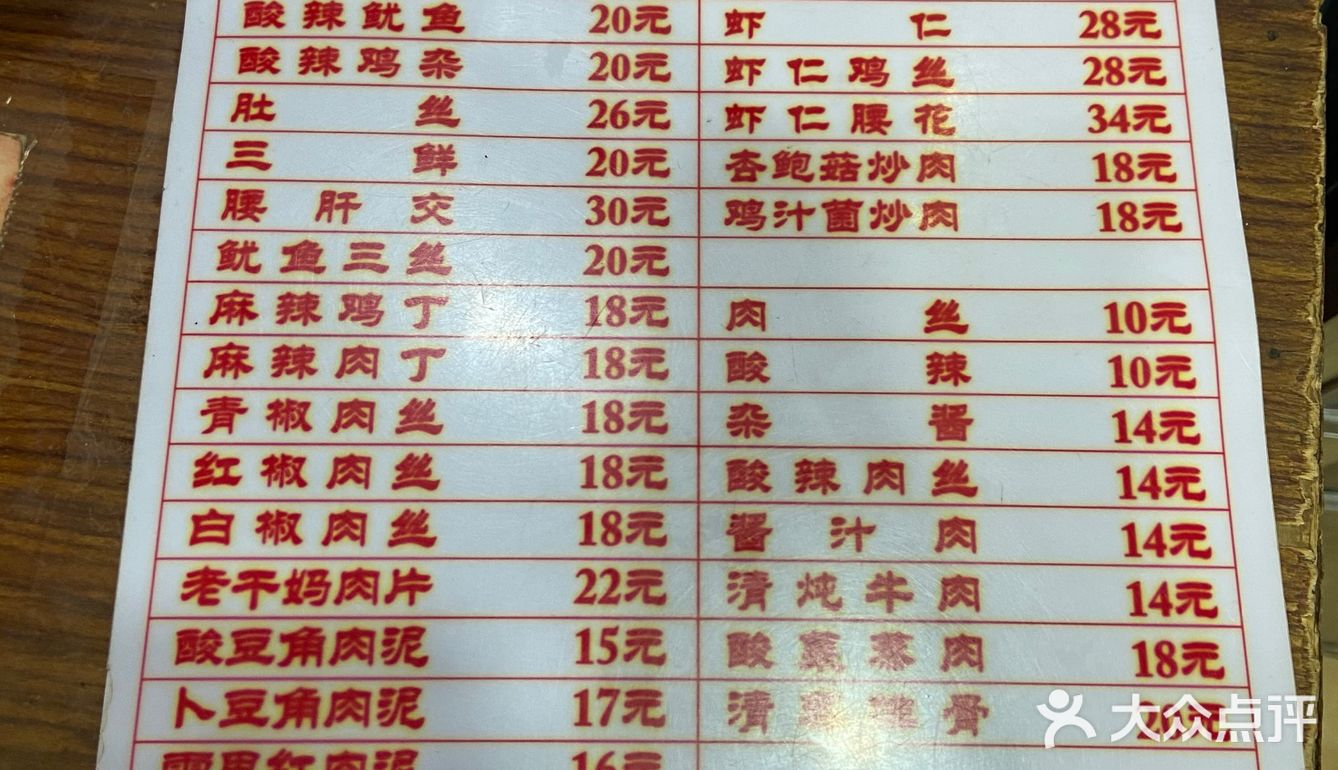 酸辣鱿鱼 20元 虾仁 28元
酸辣鸡杂 20元 虾仁鸡丝 28元
肚丝 26元 虾仁腰花 34元
三鲜 20元 杏鲍菇炒肉 18元
腰肝交 30元 鸡汁菌炒肉 18元
鱿鱼三丝 20元
麻辣鸡丁 18元 肉丝 10元
麻辣肉丁 18元 酸辣 10元
青椒肉丝 18元 杂酱 14元
红椒肉丝 18元 酸辣肉丝 14元
白椒肉丝 18元 酱汁肉 14元
老干妈肉片 22元 清炖牛肉 14元
酸豆角肉泥 15元 酸 蒸肉 18元
卜豆角肉泥 17元 清 骨
雪里红肉泥 16元
大众点评